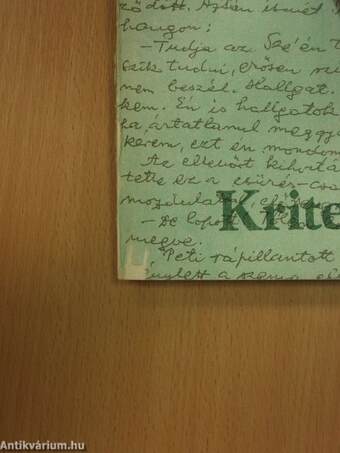 ződött. Aztán ismét
hangon:
– Tudja az
szik tudni, erősen
nem beszél. Hallgat.
kem. Én is hallgatok
ha ártatlanul meggya
kérem, ezt én mondom
Az elterült
tette ez a csűrés-csa
mozdulat
– De lopott
megve.
Peti rápillantott
a szeme
Krite
Antikvárium.hu